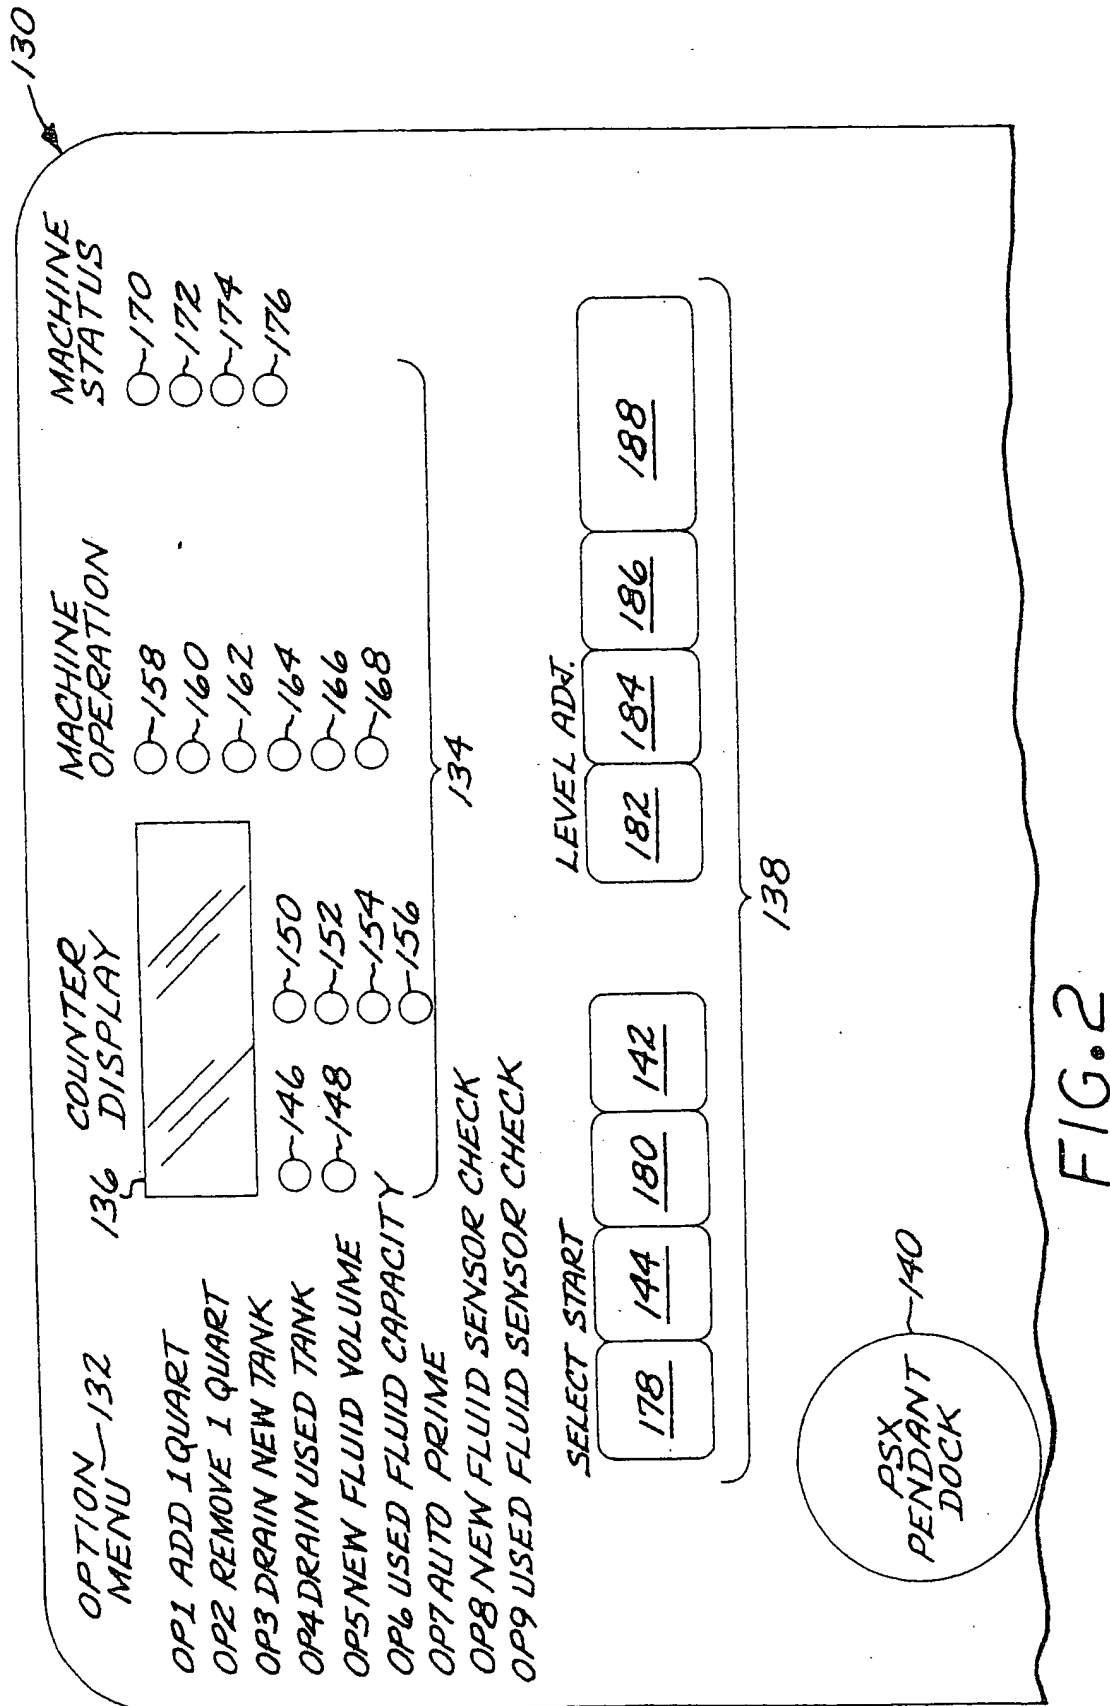 130
OPTION
MENU 132
OP1 ADD 1 QUART
OP2 REMOVE 1 QUART
OP3 DRAIN NEW TANK
OP4 DRAIN USED TANK
OP5 NEW FLUID VOLUME
OP6 USED FLUID CAPACITY
OP7 AUTO PRIME
OP8 NEW FLUID SENSOR CHECK
OP9 USED FLUID SENSOR CHECK
136
COUNTER
DISPLAY
146
148
150
152
154
156
MACHINE
OPERATION
158
160
162
164
166
168
MACHINE
STATUS
170
172
174
176
134
SELECT START
178
144
180
142
LEVEL ADJ.
182
184
186
188
138
PSX
PENDANT
DOCK
140
FIG.2